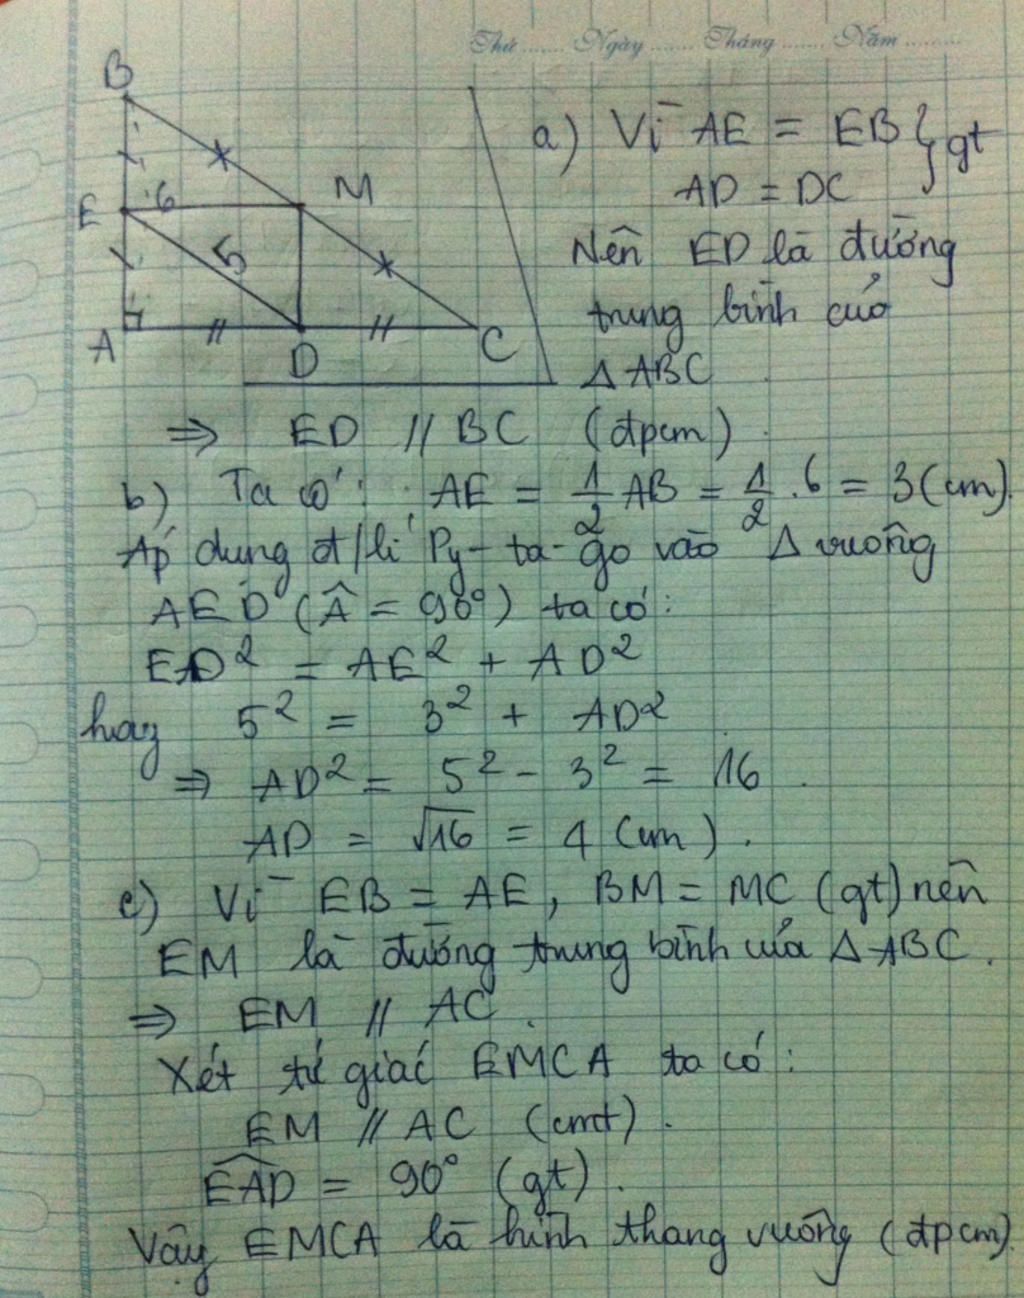 Thứ ....... Ngày ....... Tháng ....... Năm .........
B
E
6
M
5
A
D
C
a) Vì AE = EB } gt
AD = DC
Nên ED là đường
trung bình của
Δ ABC
⇒ ED // BC (đpcm).
b) Ta có: AE = 1/2 AB = 1/2 . 6 = 3 (cm).
Áp dụng đ/lí Py-ta-go vào Δ vuông
AED (Â = 90°) ta có:
ED² = AE² + AD²
hay 5² = 3² + AD²
⇒ AD² = 5² - 3² = 16.
AD = √16 = 4 (cm).
c) Vì EB = AE, BM = MC (gt) nên
EM là đường trung bình của Δ ABC.
⇒ EM // AC.
Xét tứ giác EMCA ta có:
EM // AC (cmt).
EAD̂ = 90° (gt).
Vậy EMCA là hình thang vuông (đpcm).